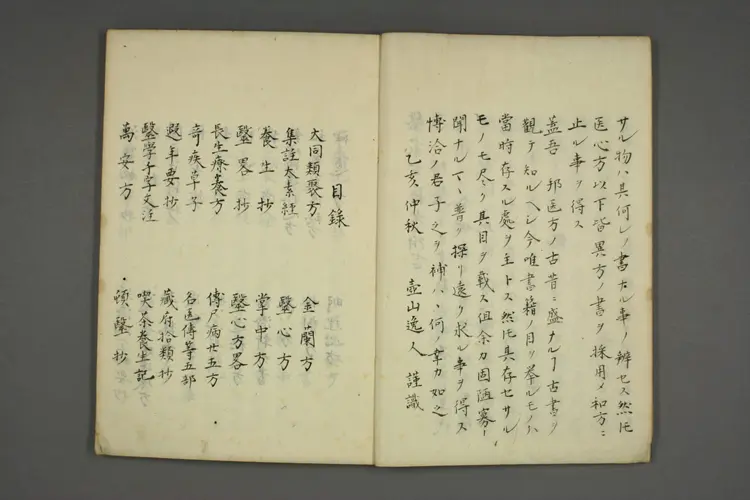 サル物ハ其何レノ書ナル事ノ辨セス然𪜈
医心方以下皆異方ノ書ヲ採用メ和方ニ
止ル事ヲ得ス
蓋吾 邦医方ノ古昔ニ盛ナルヿ古書ヲ
觀テ知ルヘシ今唯書籍ノ目ヲ挙ルモノハ
當時存スル處ヲ主トス然𪜈其存セサル
モノモ尽ク其目ヲ載ス但余カ固陋寡
聞ナルヿ普ク探リ遠ク求ル事ヲ得ス
博洽ノ君子之ヲ補ハヽ何ノ幸カ如之
乙亥仲秋 壺山逸人 謹識
目録
大同類聚方 金蘭方
集註太素経 醫心方
養生抄 掌中方
醫畧抄 醫心方畧
長生療養方 傳尸病廿五方
奇疾草子 名医傳等五部
遐年要抄 藏府拾類抄
醫學千字文注 喫茶養生記
萬安方 頓醫抄